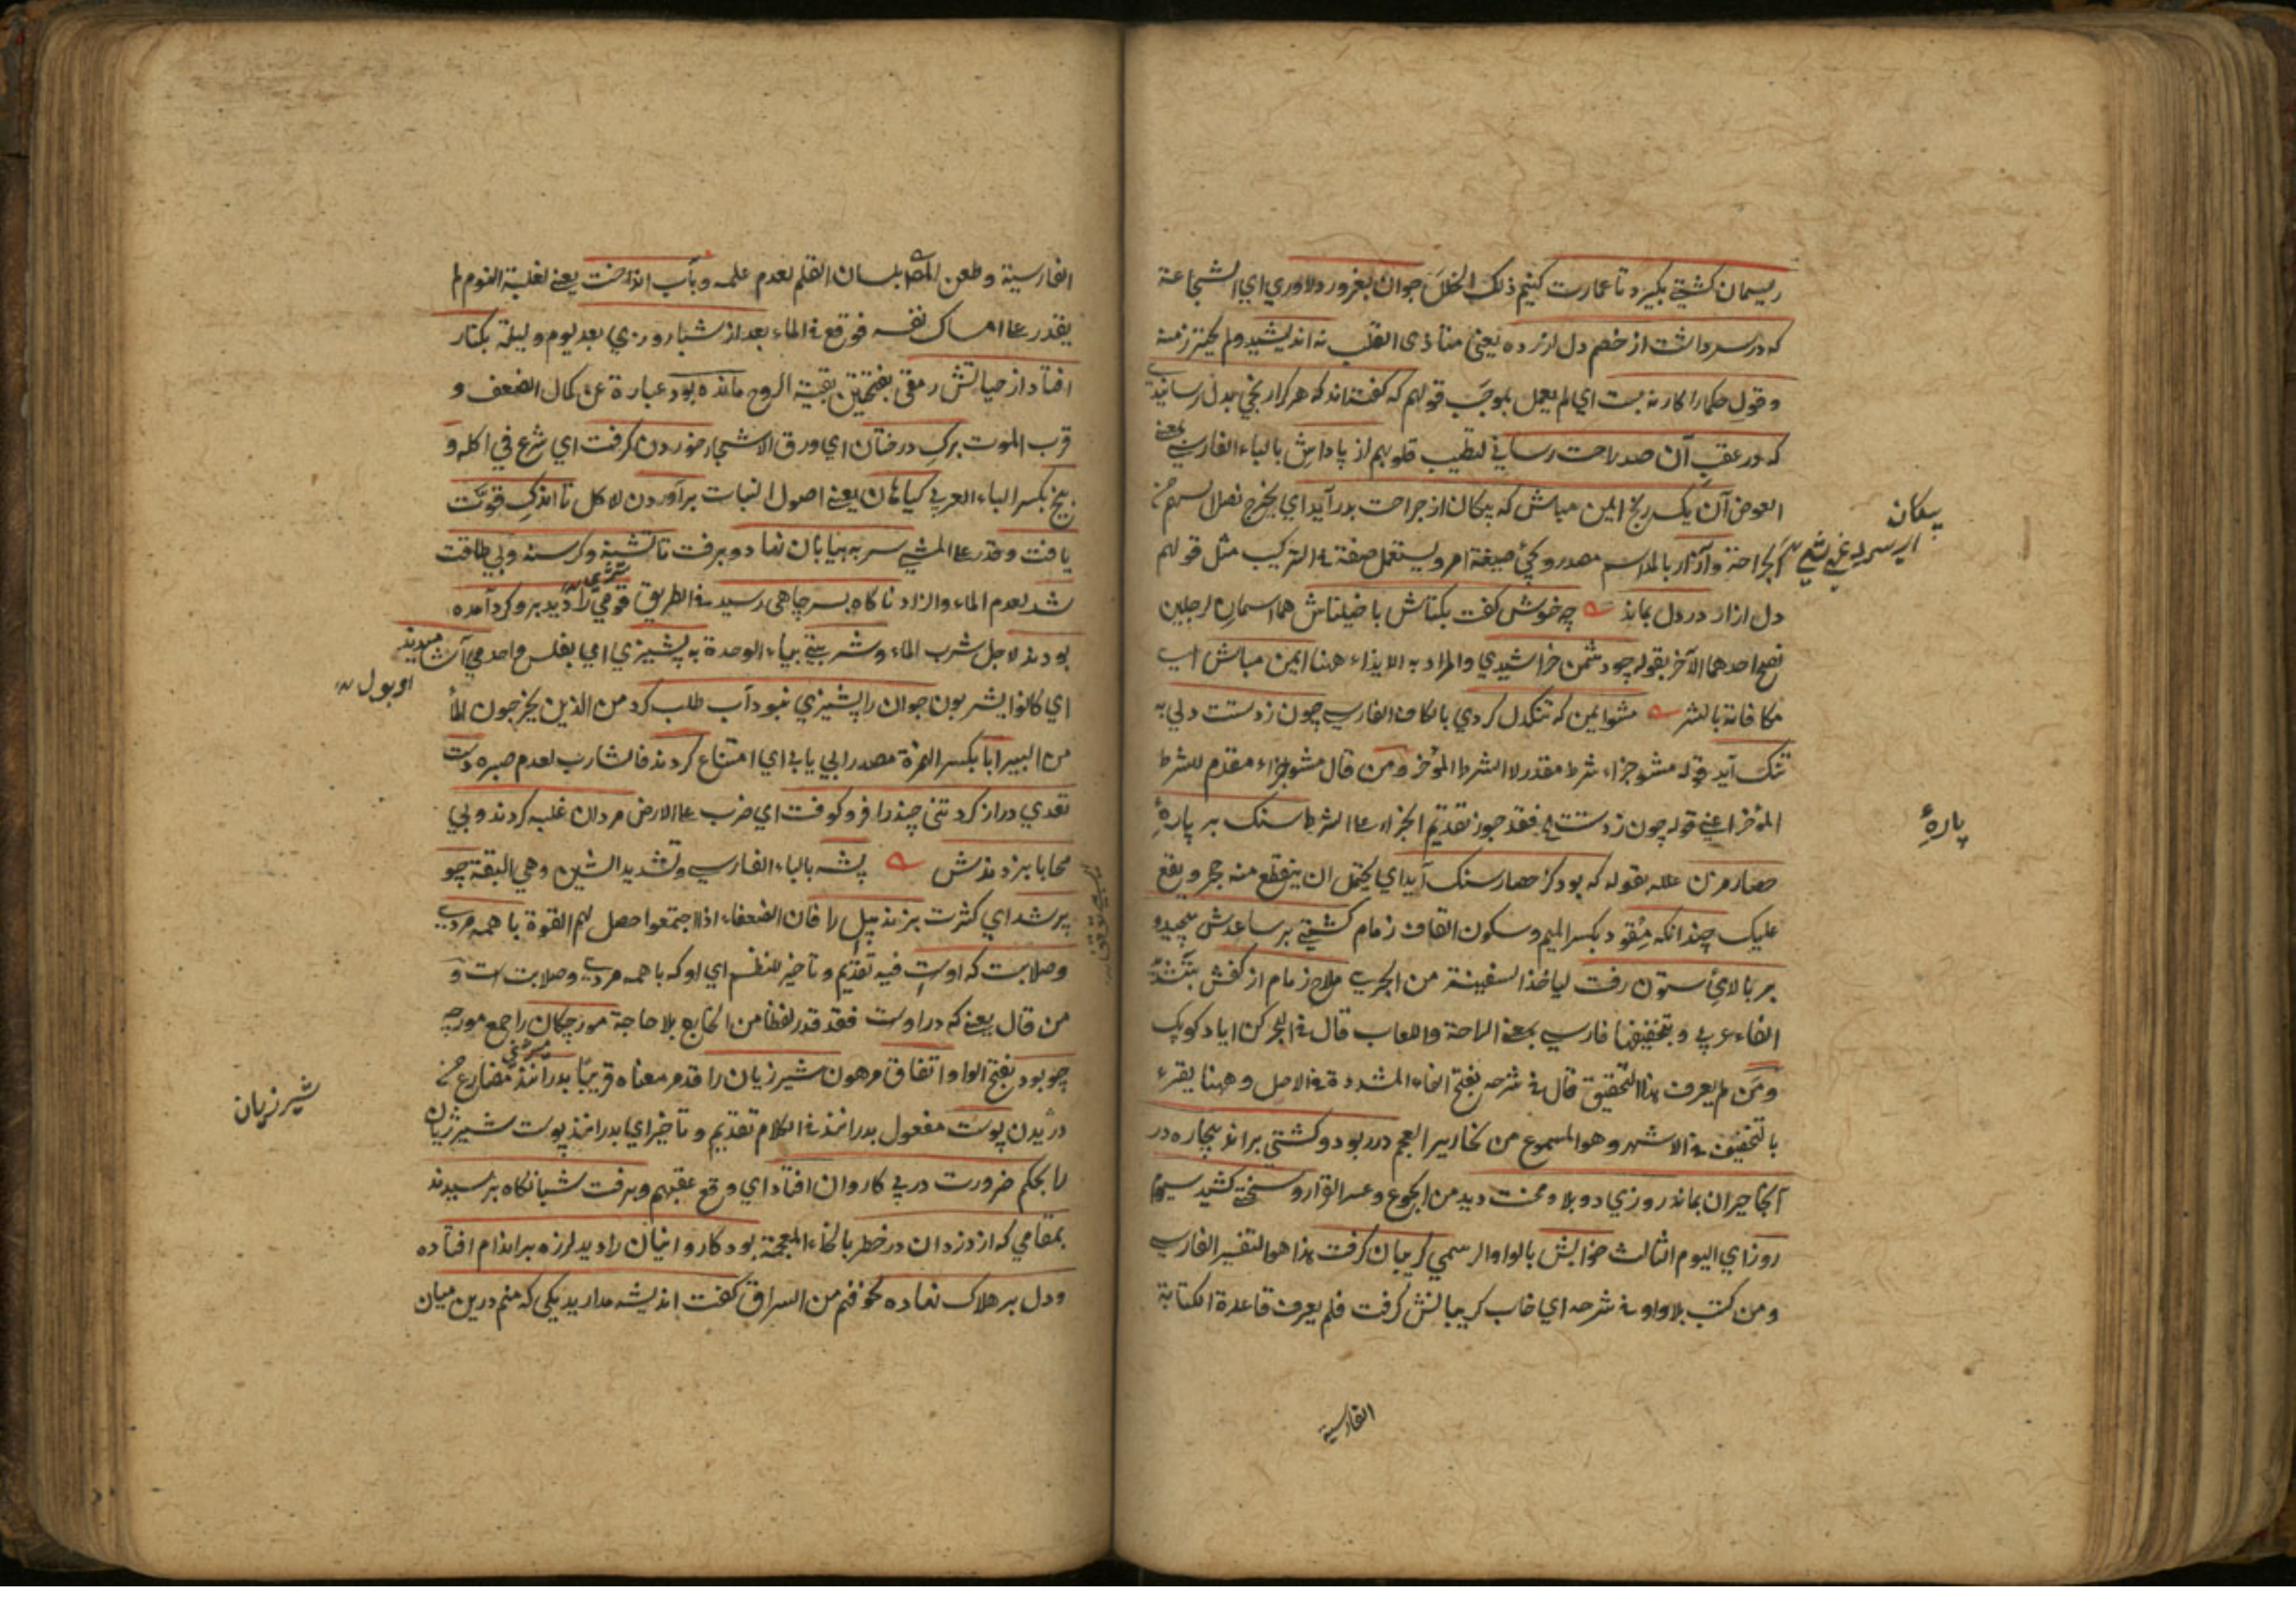 ريسمان كشتي بكيرد تا عمارت كنيم ذلك الخلل جوان بغرور دلاوري اي الشجاعة
كه در سر داشت از خصم دل ازرده يعني متأذى القلب نه انديشيد ولم يحترز منه
وقول حكما را كار نه بست اي لم يعمل بموجب قولهم كه كفته اند كه هر كرا رنجي بدل رسانيدي
كه در عقب آن صد راحت رساني لتطييب قلوبهم از پاداش بالباء الفارسي بمعنى
العوض آن يك رنج ايمن مباش كه پيكان از جراحت بدر آيد اي يخرج نصل السهم من
الجراحة وآزار بالمد اسم مصدر ويجئ صيغة امر ويستعمل صفة في التركيب مثل قولهم
دل ازار در دل بماند چه خوش كفت بكتاش با خيلتاش هما اسمان لرجلين
نصح احدهما الآخر بقوله چو دشمن خراشيدي والمراد به الايذاء ههنا ايمن مباش اي
مكافاة بالشر مشو ايمن كه تنكدل كردي بالكاف الفارسي چون زدستت دلي به
تنك آيد قوله مشو جزاء شرط مقدر لا الشرط المؤخر ومن قال مشو جزاء مقدم للشرط
المؤخر اعني قوله چون زدستت الخ فقد جوز تقديم الجزاء على الشرط سنك بر پارۀ
حصار مزن علله بقوله كه بود كز حصار سنك آيد اي يحتمل ان ينقطع منه حجر ويقع
عليك چندانكه مقود بكسر الميم وسكون القاف زمام كشتي بر ساعدش پيچيد و
بر بالاي ستون رفت ليأخذ السفينة من الجري ملاح زمام از كفش بتشديد
الفاء عربي وبتخفيفها فارسي بمعنى الراحة واللعاب قال في البحر كن اياد كوپك
ومن لم يعرف هذا التحقيق قال في شرحه بفتح الفاء المشددة في الاصل وههنا يقرء
بالتخفيف في الاشهر وهو المسموع من نحارير العجم در ربود وكشتي براند بيچاره در
آنجا حيران بماند روزي دو بلا ومحنت ديد من الجوع وعسر القرار وسختي كشيد سيوم
روز اي اليوم الثالث خوابش بالواو الرسمي كريبان كرفت هذا هو التفسير الفارسي
ومن كتب بلا واو في شرحه اي خاب كريبانش كرفت فلم يعرف قاعدة الكتابة
الفارسية
پيكان
پارۀ
الفارسية وطعن المص بلسان القلم لعدم علمه وبآب انداخت يعني لغلبة النوم لم
يقدر على امساك نفسه فوقع في الماء بعد از شبانروزي بعد يوم وليلة بكنار
افتاد از حياتش رمقى بفتحتين بقية الروح مانده بود عبارة عن كمال الضعف و
قرب الموت برك درختان اي ورق الاشجار خوردن كرفت اي شرع في اكله و
بيخ بكسر الباء العربي كياهان يعني اصول النبات برآوردن لاكل تا اندكي قوت
يافت وقدر على المشي سر به بيابان نهاد وبرفت تا تشنه وكرسنه وبي طاقت
شد لعدم الماء والزاد ناكاه بسر چاهى رسيد في الطريق قومي را ديد برو كرد آمده
بودند لاجل شرب الماء وشربتي بياء الوحدة به پشيزي اي بفلس واحد مي آشاميدند
اي كانوا يشربون جوان را پشيزي نبود آب طلب كرد من الذين يخرجون الماء
من البير ابا بكسر الهمزة مصدر ابي يابى اي امتناع كردند فالشارب لعدم صبره دست
تعدي دراز كرد تني چند را فرو كوفت اي ضرب على الارض مردان غلبه كردند وبي
محابا بزدندش پشه بالباء الفارسي وتشديد الشين وهي البقة چو
پر شد اي كثرت بزند پيل را فان الضعفاء اذا اجتمعوا حصل لهم القوة با همه مردي
وصلابت كه اوست فيه تقديم وتأخير للنظم اي او كه با همه مردي وصلابت است و
من قال يعني كه در اوست فقد قدر لفظا من الخارج بلا حاجة مورچكان را جمع مورچه
چو بود بفتح الواو اتفاق مرهون شير زيان را قد مر معناه قريبًا بدرانند مضارع من
دريدن پوست مفعول بدرانند في الكلام تقديم وتأخير اي بدرانند پوست شير ژيان
را بحكم ضرورت در پي كاروان افتاد اي وقع عقبهم وبرفت شبانكاه برسيدند
بمقامي كه از دزدان در خطر بالخاء المعجمة بود كاروانيان را ديد لرزه بر اندام افتاده
ودل بر هلاك نهاده لخوفهم من السراق كفت انديشه مداريد يكي كه منم درين ميان
اوبول
شير زيان